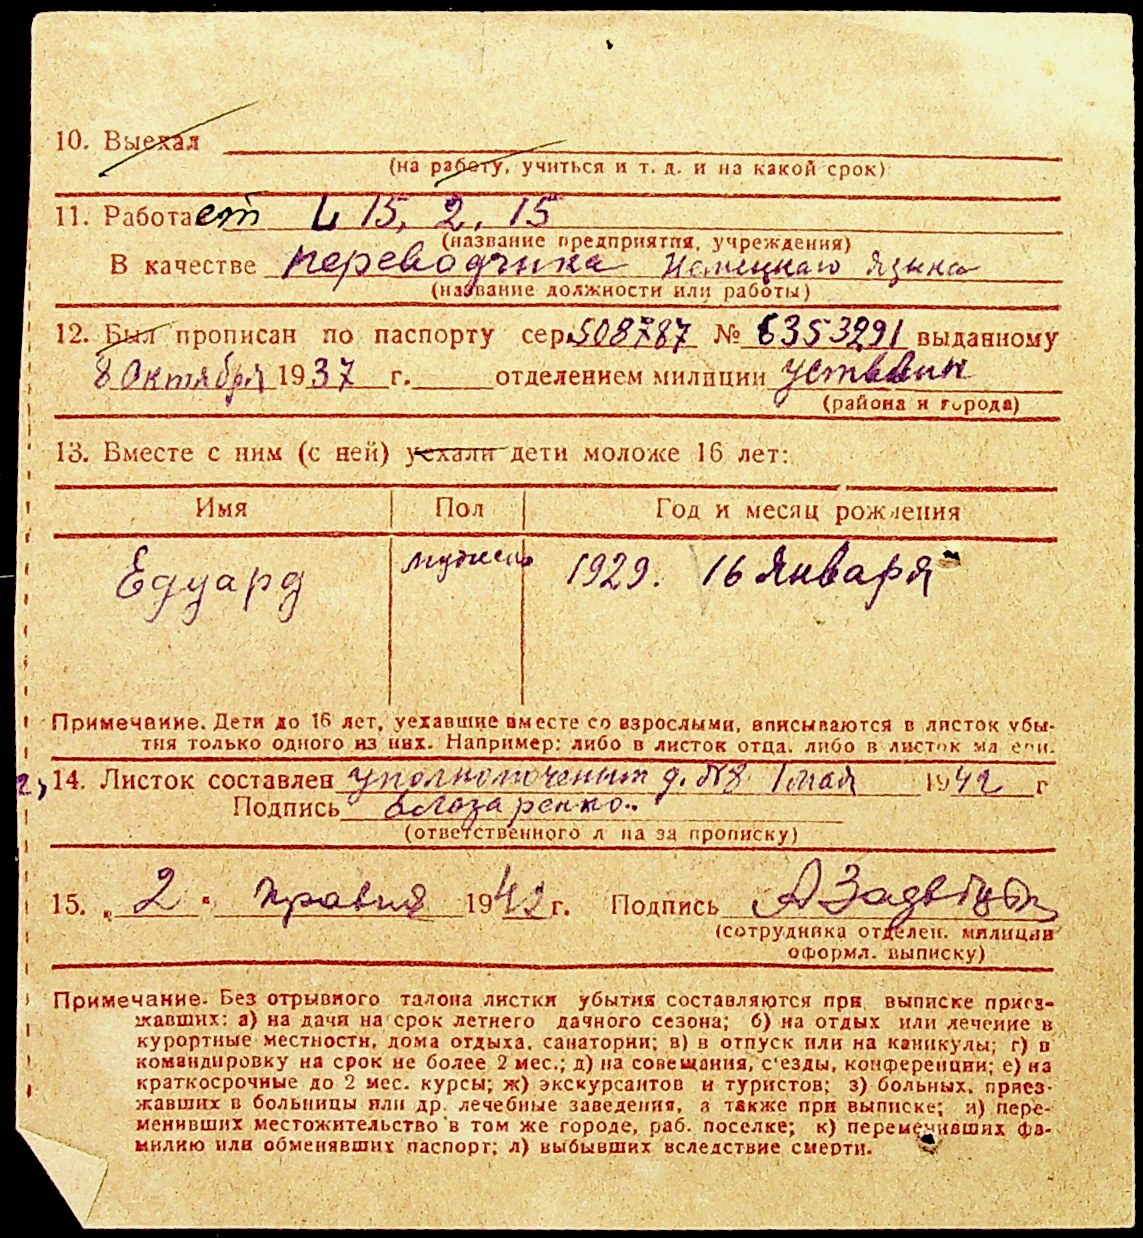 10. Выехал
(на работу, учиться и т. д. и на какой срок)
11. Работает L 15, 2, 15
(название предприятия, учреждения)
В качестве переводчика Немецкаго языка
(название должности или работы)
12. Был прописан по паспорту сер. 508787 № 6353291 выданному
8 Октября 1937 г. отделением милиции
(района и города)
13. Вместе с ним (с ней) уехали дети моложе 16 лет:
Имя Пол Год и месяц рождения
Едуард 1929. 16 Января
Примечание. Дети до 16 лет, уехавшие вместе со взрослыми, вписываются в листок убы-
тия только одного из них. Например: либо в листок отца, либо в листок ма ери.
14. Листок составлен уполномоченым д. №8 1 мая 1942 г
Подпись
(ответственного л на за прописку)
15. „ 2 " травня 1942 г. Подпись
(сотрудника отделен. милиции
оформл. выписку)
Примечание. Без отрывного талона листки убытия составляются при выписке приез-
жавших: а) на дачи на срок летнего дачного сезона; б) на отдых или лечение в
курортные местности, дома отдыха, санатории; в) в отпуск или на каникулы; г) в
командировку на срок не более 2 мес.; д) на совещания, с'езды, конференции; е) на
краткосрочные до 2 мес. курсы; ж) экскурсантов и туристов; з) больных, приез-
жавших в больницы или др. лечебные заведения, а также при выписке; и) пере-
менивших местожительство в том же городе, раб. поселке; к) переменивших фа-
милию или обменявших паспорт; л) выбывших вследствие смерти.